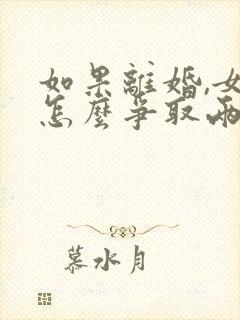 如果離婚,女
怎麼爭取兩
慕水月